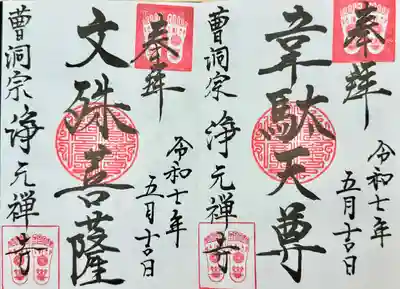 奉拝
令和七年
五月十六日
韋駄天尊
曹洞宗 浄元禅寺
奉拝
令和七年
五月十六日
文殊菩薩
曹洞宗 浄元禅寺